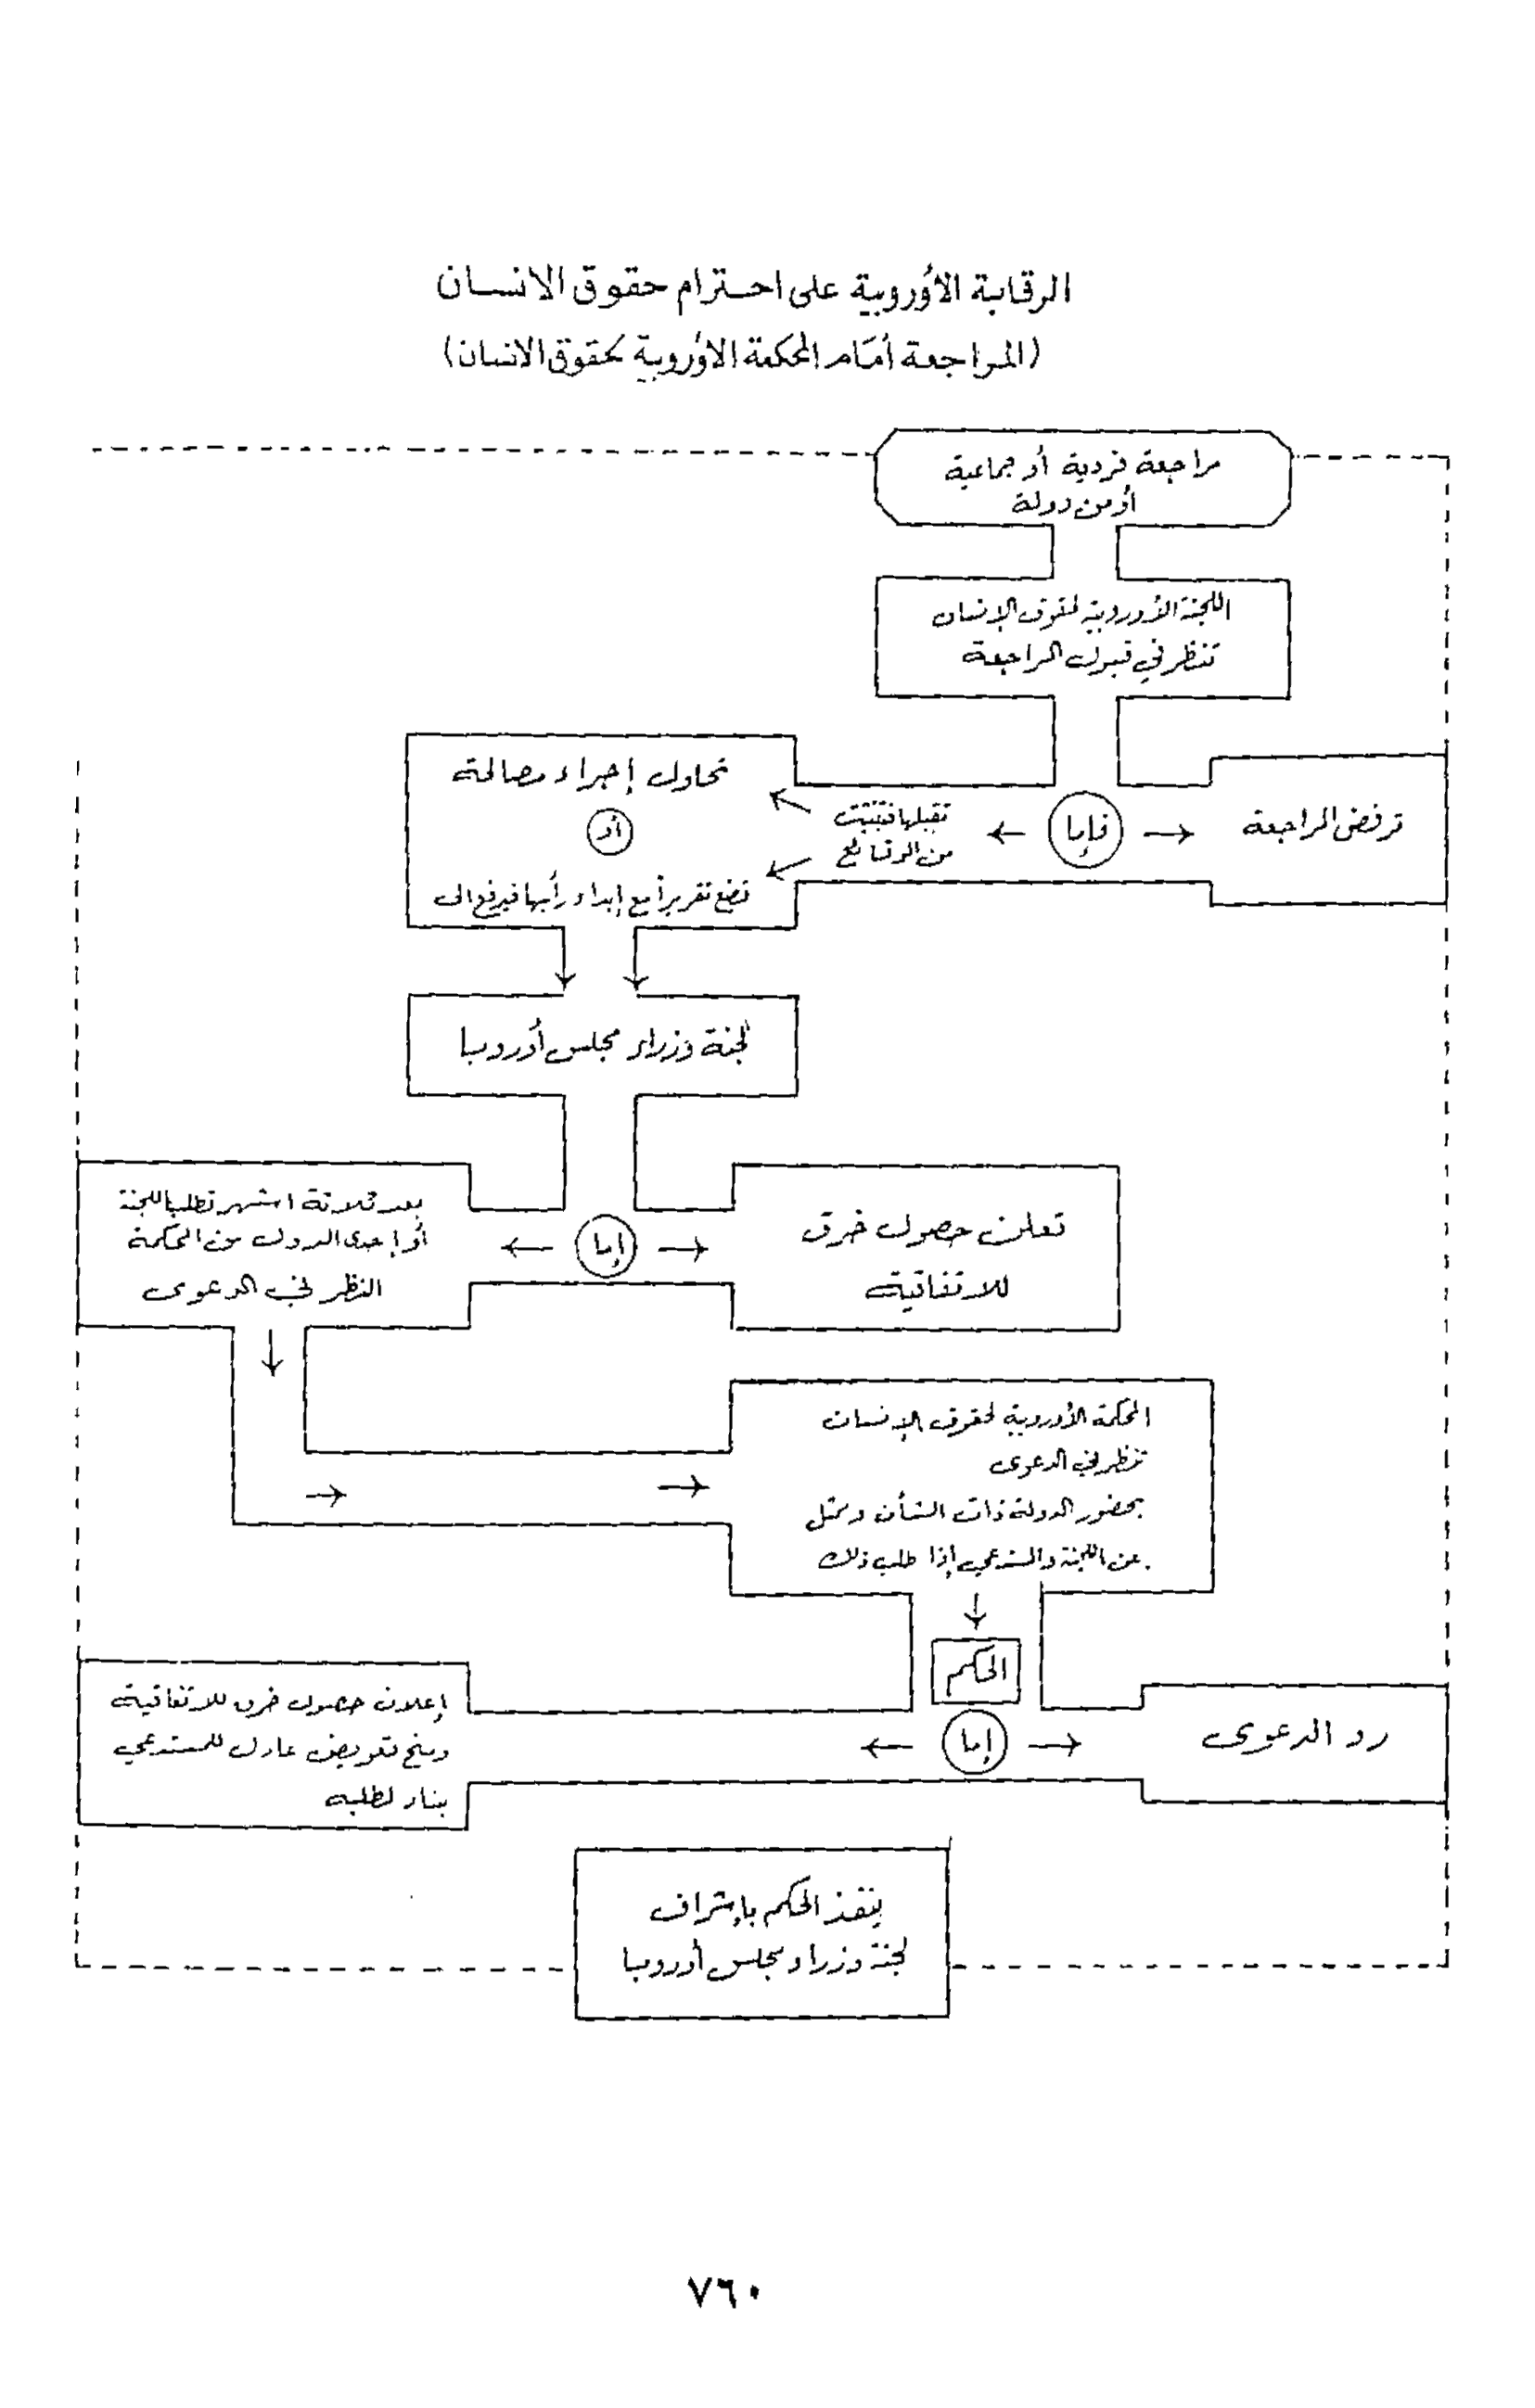 الرقابة الأوروبية على احترام حقوق الانسان
(المراجعة أمام المحكمة الأوروبية لحقوق الانسان)
مراجعة فردية أو جماعية
أو من دولة
اللجنة الأوروبية لحقوق الإنسان
تنظر في قبول المراجعة
ترفض المراجعة
فإما
تقبلها فتثبت
من الوقائع
تحاول إجراء مصالحة
أو
تضع تقريراً مع إبداء رأيها فيرفع الى
لجنة وزراء مجلس أوروبا
تعلن حصول خرق
للاتفاقية
إما
بعد ثلاثة اشهر تطلب اللجنة
أو إحدى الدول من المحكمة
النظر في الدعوى
المحكمة الأوروبية لحقوق الإنسان
تنظر في الدعوى
بحضور الدولة ذات الشأن وممثل
عن اللجنة والمستدعي إذا طلب ذلك
الحكم
رد الدعوى
إما
إعلان حصول خرق للاتفاقية
ومنح تعويض عادل للمستدعي
بناء لطلبه
ينفذ الحكم بإشراف
لجنة وزراء مجلس أوروبا
٧٦٠